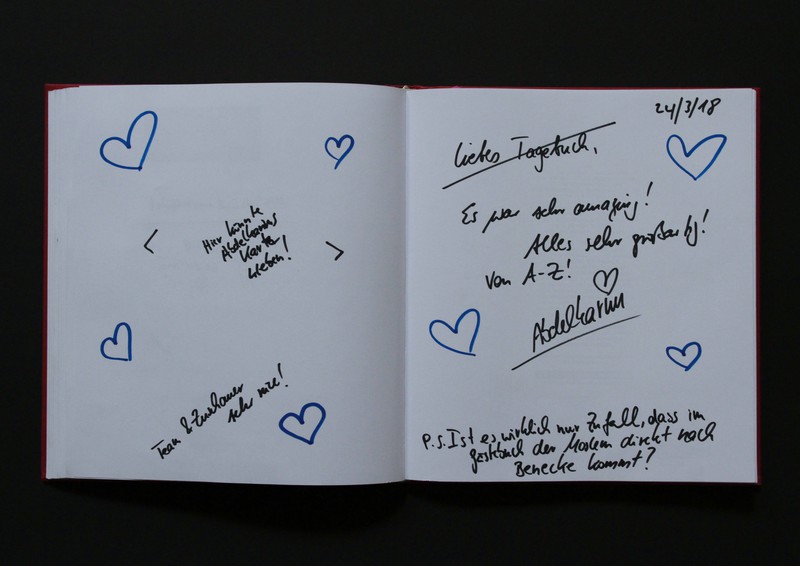 Hier könnte
Abdelkarims
Karte
kleben!
< >
Team & Zuschauer
sehr nice!
24/3/18
Liebes Tagebuch,
Es war sehr amazing!
Alles sehr großartig!
Von A-Z!
Abdelkarim
P.S. Ist es wirklich nur Zufall, dass im
Gästebuch der Moslem direkt nach
Benecke kommt?